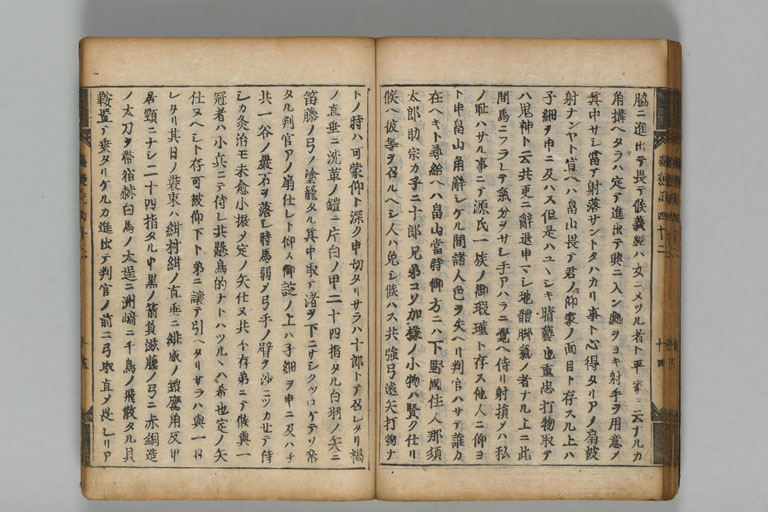 脇ニ進出テ畏テ候義經ハ女ニメツル者ト平家ニ云ナルカ
角搆ヘタラハ定テ進出テ興ニ入ン處ヲヨキ射手ヲ用意メ
真中サシ當テ射落サントタハカリ事ト心得タリアノ扇被
射ナンヤト宣ヘハ畠山畏テ君ノ仰家ノ面目ト存スル上ハ
子細ヲ申ニ及ハス但是ハユヽシキ晴藝也重忠打物取テ
ハ鬼神ト云共更ニ辭退申マシ地體脚氣ノ者ナル上ニ此
間馬ニフラレテ氣分ヲサシ手アハラニ覺ヘ侍リ射損メハ私
ノ耻ハサル事ニテ源氏一族ノ御瑕瑾ト存ス他人ニ仰ヨ
ト申畠山角辭シケル間諸人色ヲ失ヘリ判官ハサテ誰カ
在ヘキト尋給ヘハ畠山當時御方ニハ下野國住人那須
太郎助宗カ子ニ十郎兄弟コソ加樣ノ小物ハ賢ク仕リ
候ヘ彼等ヲ召ルヘシ人ハ免シ候ハス共強弓遠矢打物ナ
四十二
十四
トノ時ハ可蒙仰ト深ク申切タリサラハ十郎トテ召レタリ褐
ノ直垂ニ洗革ノ鎧ニ片白ノ甲二十四指タル白羽ノ矢ニ
笛藤ノ弓ノ塗籠タル真中取テ渚ヲ下ニサシクツロケテソ參
タル判官アノ扇仕レト仰ス御諚ノ上ハ子細ヲ申ニ及ハネ
共一谷ノ巖石ヲ落シ時馬弱クメ弓手ノ臂ヲ沙ニツカセテ侍
シカ灸治モ未愈小振メ定ノ矢仕ヌ共不存弟ニテ候與一
冠者ハ小兵ニテ侍レ共懸鳥的ナトハツルヽハ希也定ノ矢
仕ヌヘシト存可被仰下ト弟ニ讓テ引ヘタリサラハ與一召
レタリ其日ノ裝束ハ紺村紺ノ直垂ニ緋威ノ鎧鷹角反甲
居頸ニナシ二十四指タル中黒ノ箭負滋藤ノ弓ニ赤銅造
ノ太刀ヲ帶宿赫白馬ノ太逞ニ洲崎ニ千鳥ノ飛散タル貝
鞍置テ乘タリケルカ進出テ判官ノ前ニ弓取直メ畏レリア